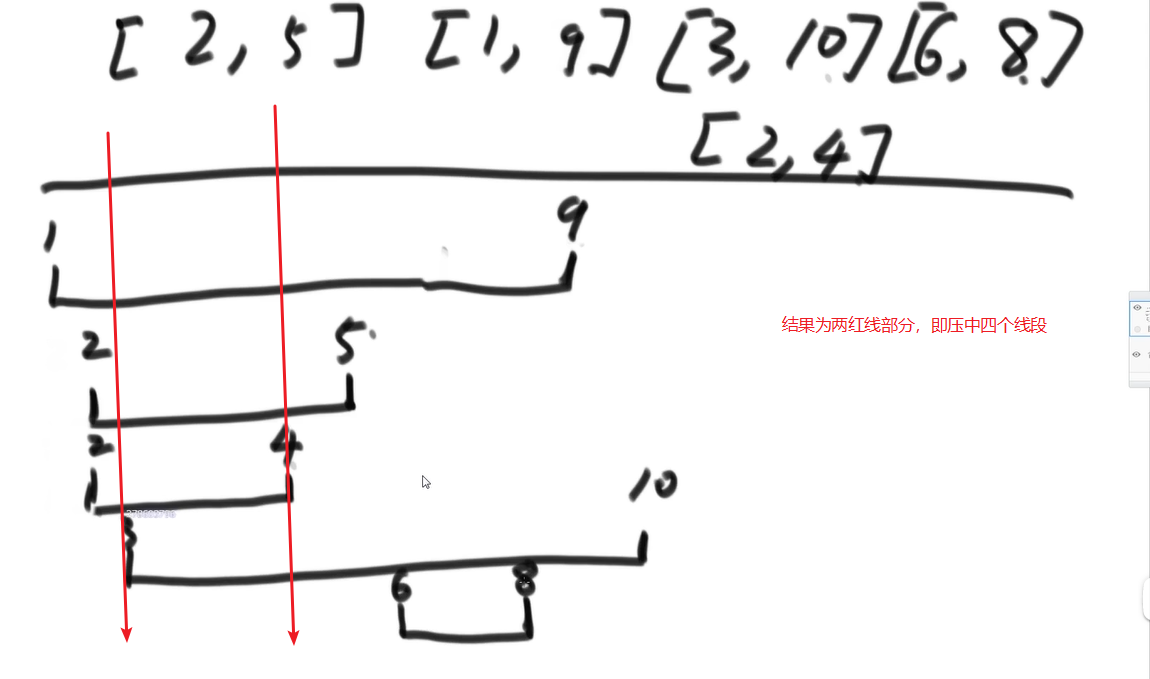 [2, 5] [1, 9] [3, 10] [6, 8]
[2, 4]
1 9
2 5
2 4
3 10
6 8
结果为两红线部分，即压中四个线段